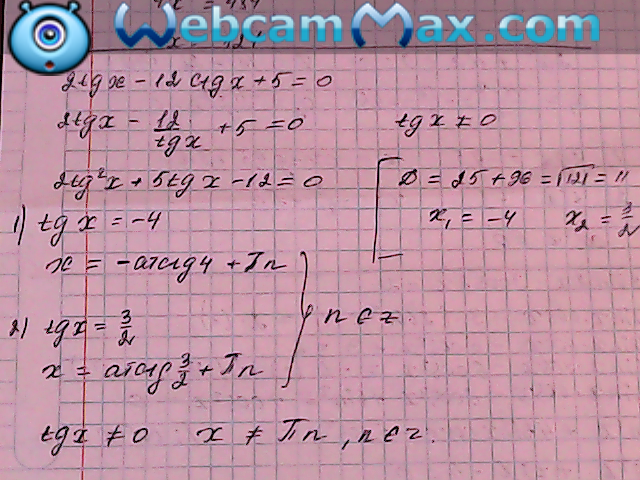 WebcamMax.com
2tgx - 12 ctgx + 5 = 0
2tgx - 12/tgx + 5 = 0 tgx ≠ 0
2tg²x + 5tgx - 12 = 0 D = 25 + 96 = √121 = 11
1) tgx = -4 x₁ = -4 x₂ = 3/2
x = -arctg4 + Пn
2) tgx = 3/2 n ∈ z
x = arctg 3/2 + Пn
tgx ≠ 0 x ≠ Пn, n ∈ z.